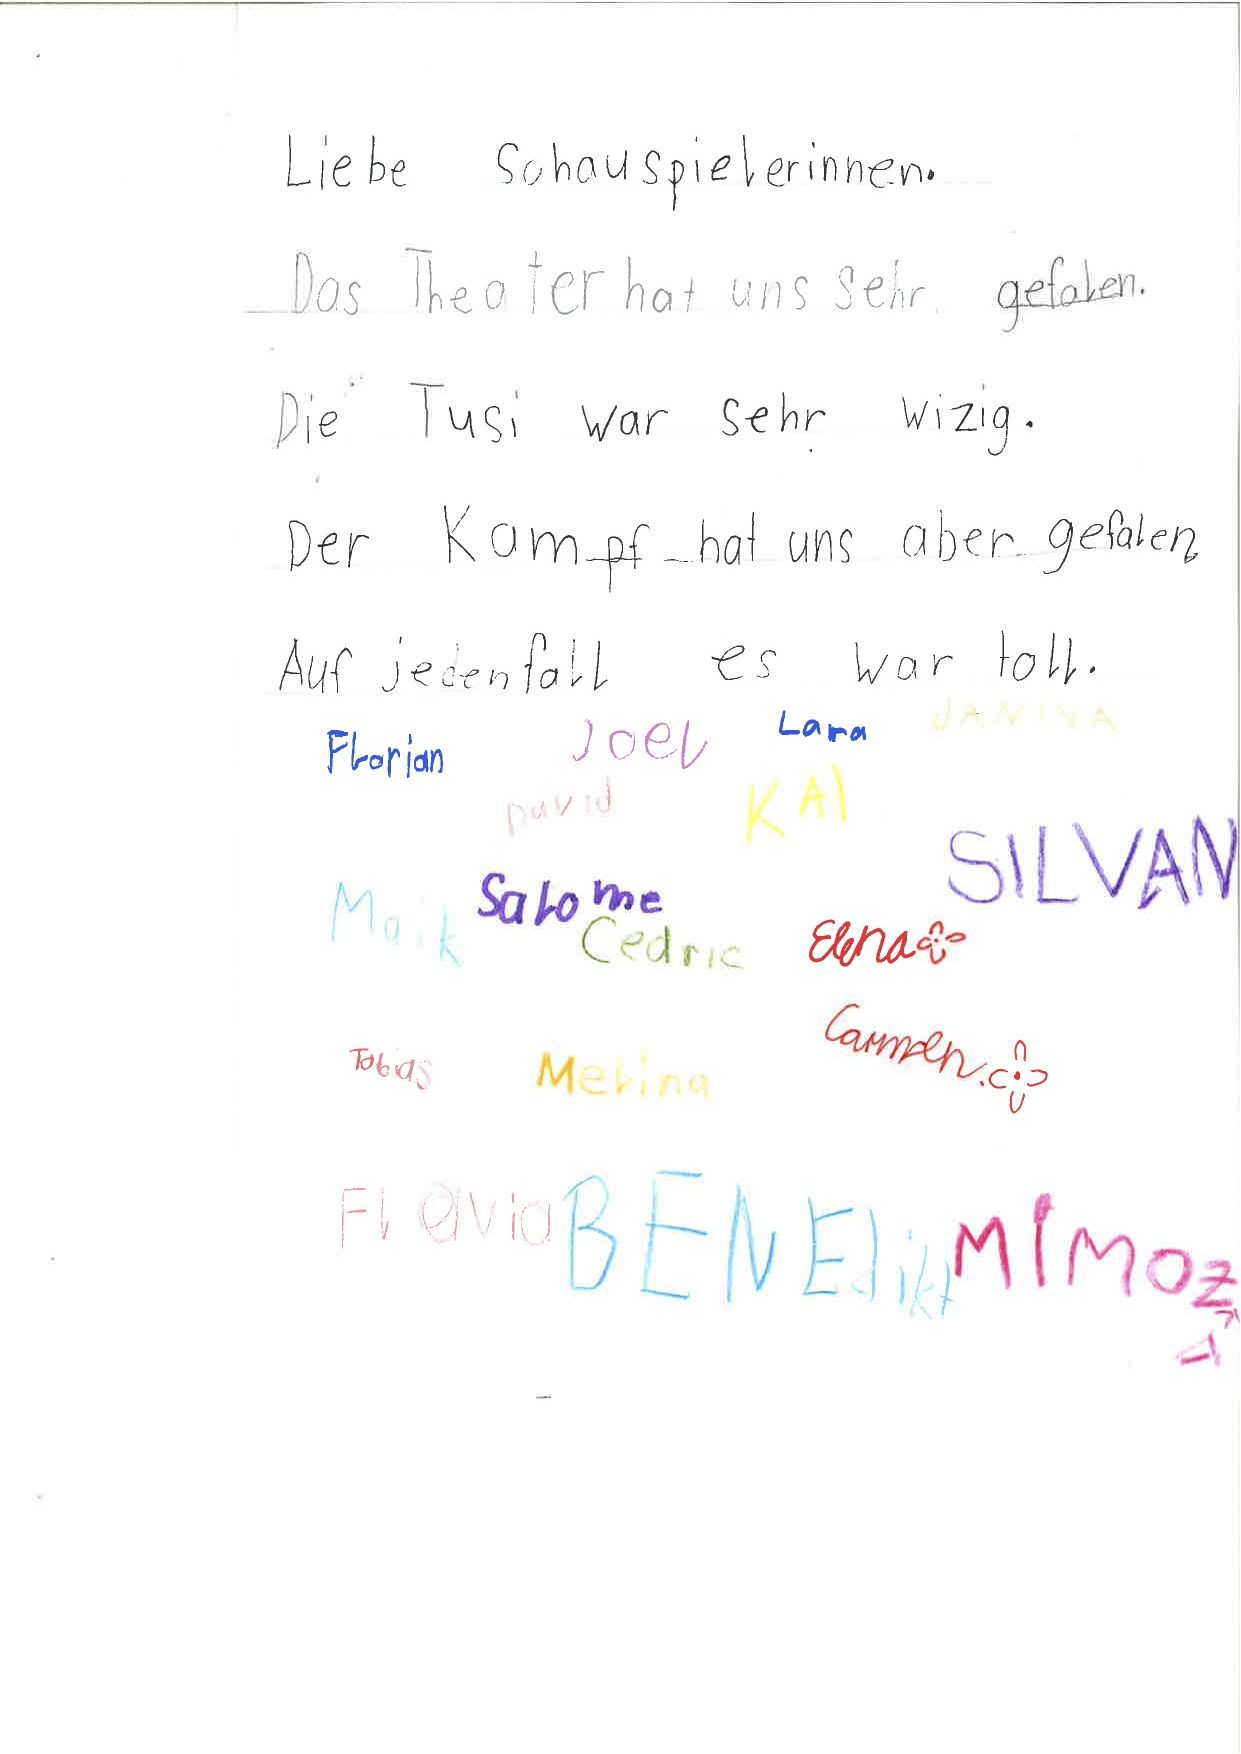 Liebe Schauspielerinnen.
Das Theater hat uns sehr gefalen.
Die Tusi war sehr wizig.
Der Kampf hat uns aber gefalen
Auf jedenfall es war toll.
Florian Joel Lara JANINA
David KAI
SILVAN
Maik Salome
Cedric Elena
Carmen.
Tobias Melina
Flavia BENEdikt MIMOZA